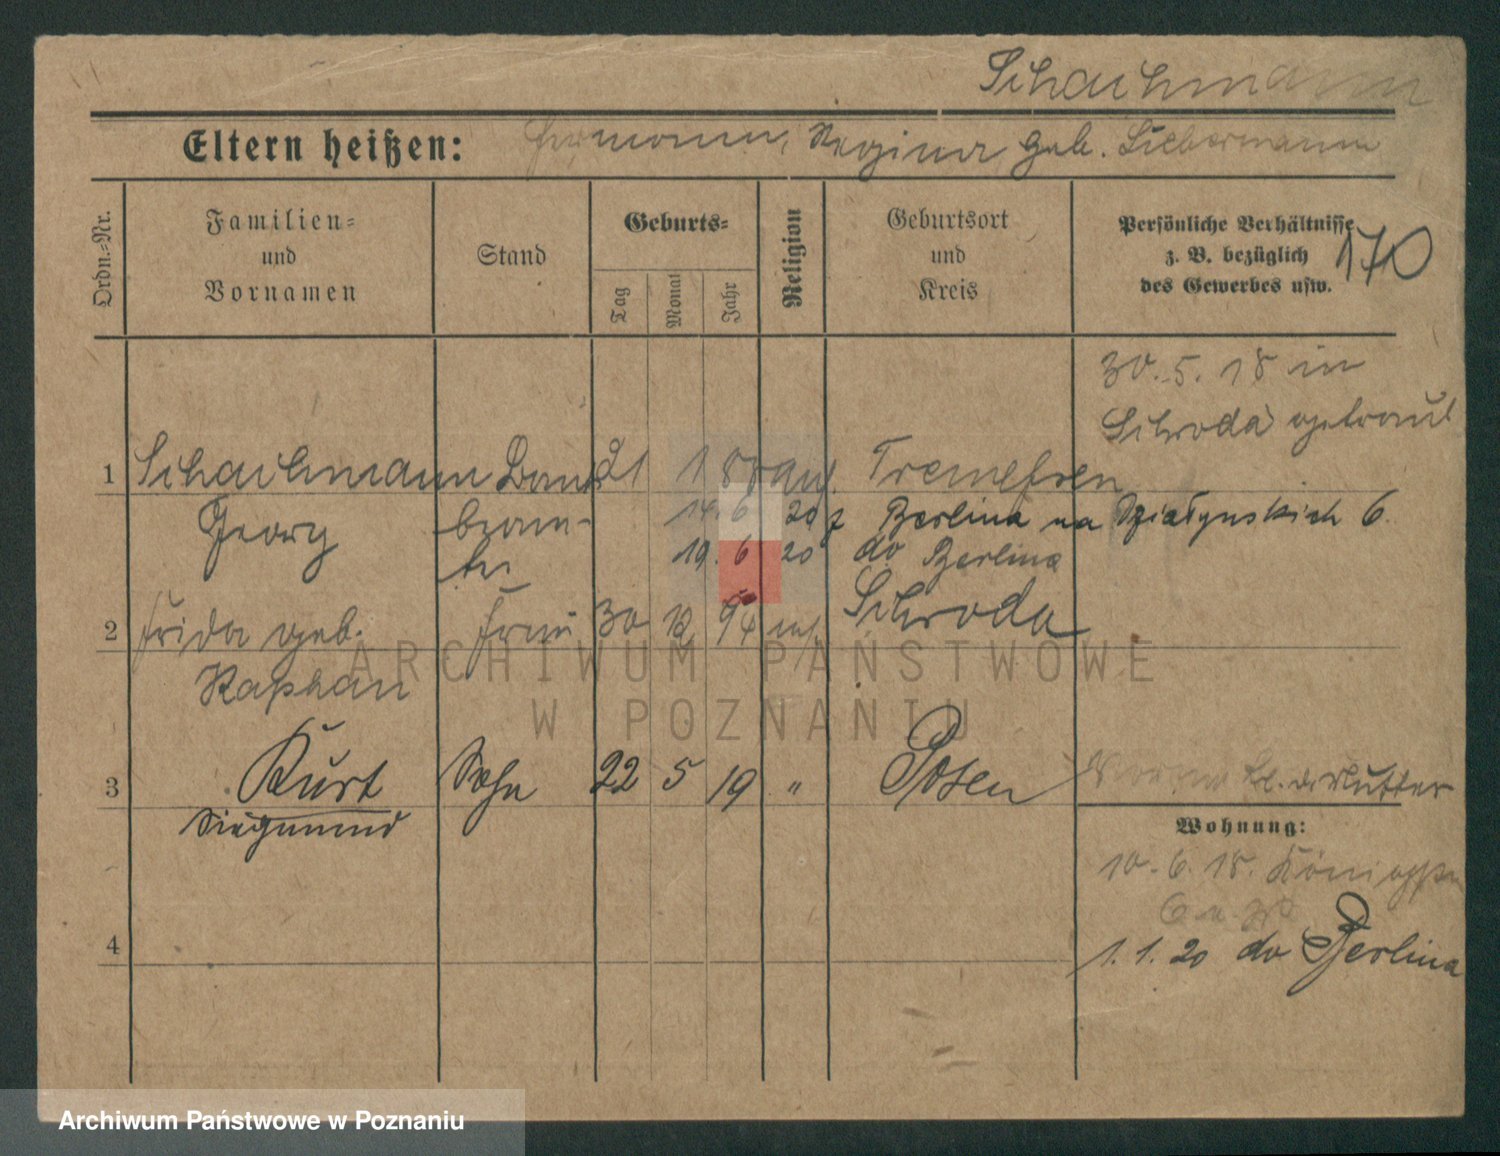 Schachmann
Eltern heißen: Hermann, Regina geb. Liebermann
Ordn.=Nr.
Familien=
und
Vornamen
Stand
Geburts=
Tag
Monat
Jahr
Religion
Geburtsort
und
Kreis
Persönliche Verhältnisse
z. B. bezüglich
des Gewerbes usw.
170
30. 5. 18 in
Schroda getraut
1 Schachmann Bank 21 1 88 Tremessen
Georg beam-
ter
14. 6 20 z Berlina na Działynskich 6.
19. 6 20 do Berlina
2 Frida geb. Frau 30 12 94 Schroda
Kaphan
3 Kurt Sohn 22 5 19 " Posen
Siegmund
d. Mutter
Wohnung:
10. 6. 18. Königspl.
4
1. 1. 20 do Berlina
ARCHIWUM PAŃSTWOWE
W POZNANIU
Archiwum Państwowe w Poznaniu